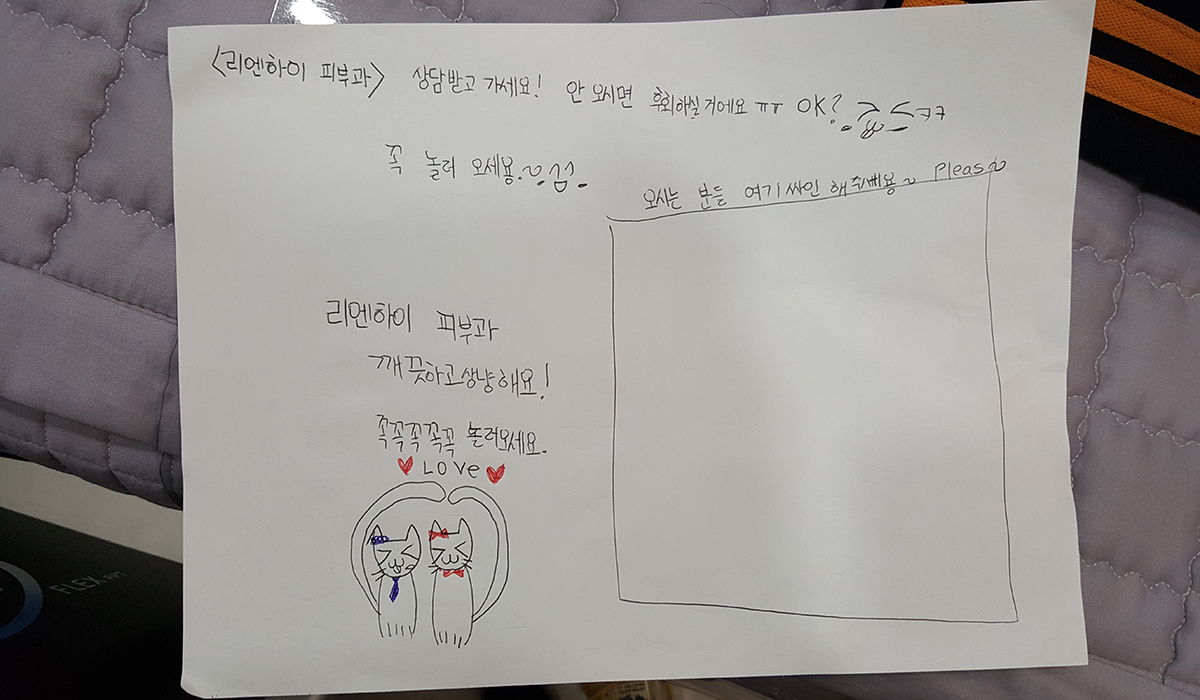 <리엔하이 피부과> 상담받고 가세요! 안 오시면 후회하실거에요 ㅠㅠ OK? ㅋㅋ
꼭 놀러 오세용
오시는 분들 여기 싸인 해주세용~ Pleas~
리엔하이 피부과
깨끗하고상냥해요!
꼭꼭꼭꼭꼭 놀러오세요.
♥ LOVe ♥
FLEX